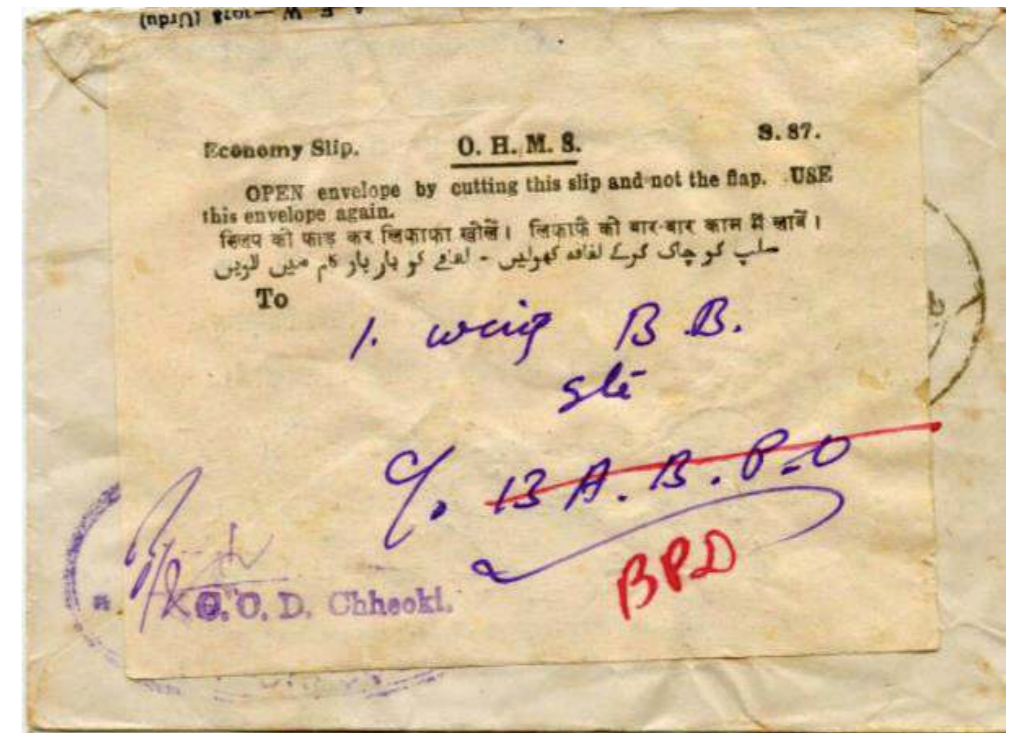 A. F. W.—1018 (Urdu)
Economy Slip. O. H. M. S. S. 87.
OPEN envelope by cutting this slip and not the flap. USE
this envelope again.
स्लिप को फाड़ कर लिफाफा खोलें। लिफाफे को बार-बार काम में लावें।
سلپ کو چاک کرکے لفافہ کھولیں - لفافے کو بار بار کام میں لاویں
To
1. wing B B.
c/o 13 A. B. P. O
BPD
O. O. D. Chheoki.